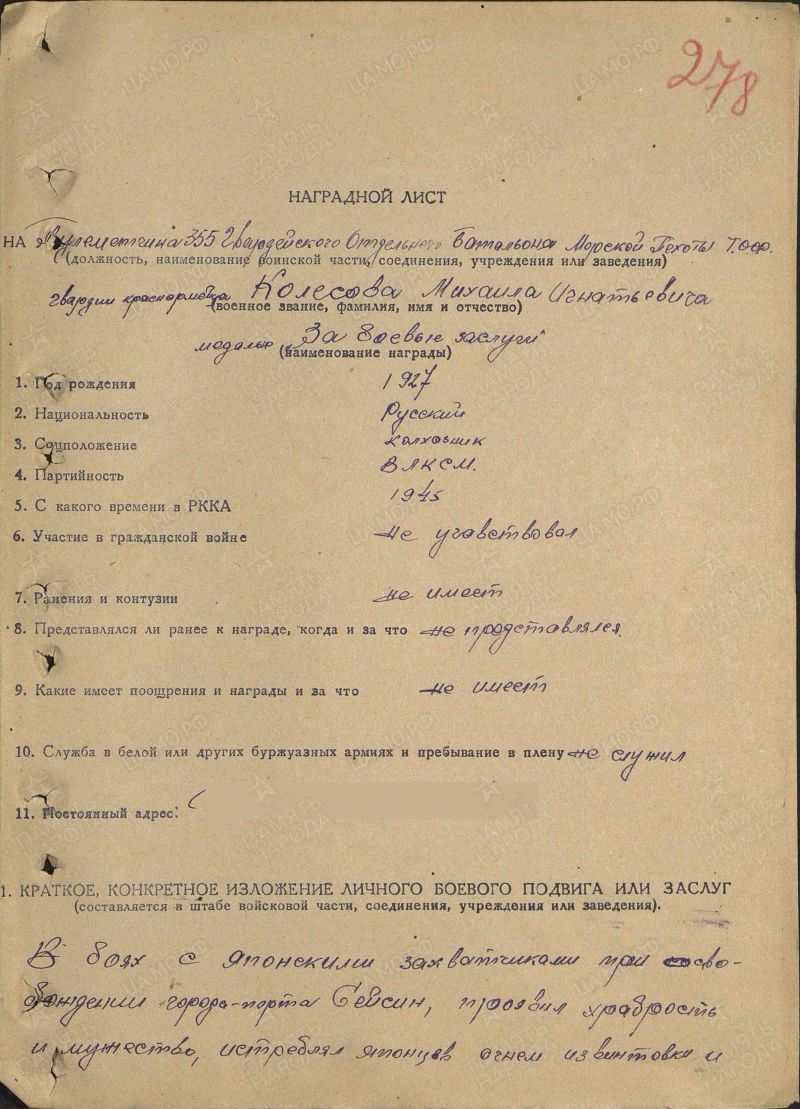 278
НАГРАДНОЙ ЛИСТ
НА Пулеметчика 355 Гвардейского Отдельного Батальона Морской Пехоты Т.О.Ф.
(должность, наименование воинской части, соединения, учреждения или заведения)
гвардии красноармейца Колесова Михаила Игнатьевича
(военное звание, фамилия, имя и отчество)
медалью "За боевые заслуги"
(наименование награды)
1. Год рождения 1927
2. Национальность Русский
3. Соцположение колхозник
4. Партийность ВЛКСМ.
5. С какого времени в РККА 1945
6. Участие в гражданской войне не учавствовал
7. Ранения и контузии не имеет
8. Представлялся ли ранее к награде, когда и за что не представлялся.
9. Какие имеет поощрения и награды и за что не имеет
10. Служба в белой или других буржуазных армиях и пребывание в плену не служил
11. Постоянный адрес:
1. КРАТКОЕ, КОНКРЕТНОЕ ИЗЛОЖЕНИЕ ЛИЧНОГО БОЕВОГО ПОДВИГА ИЛИ ЗАСЛУГ
(составляется в штабе войсковой части, соединения, учреждения или заведения).
В боях с японскими захватчиками при осво-
бождении города-порта Сейсин, проявил храбрость
и мужество, истреблял японцев огнем из винтовки и